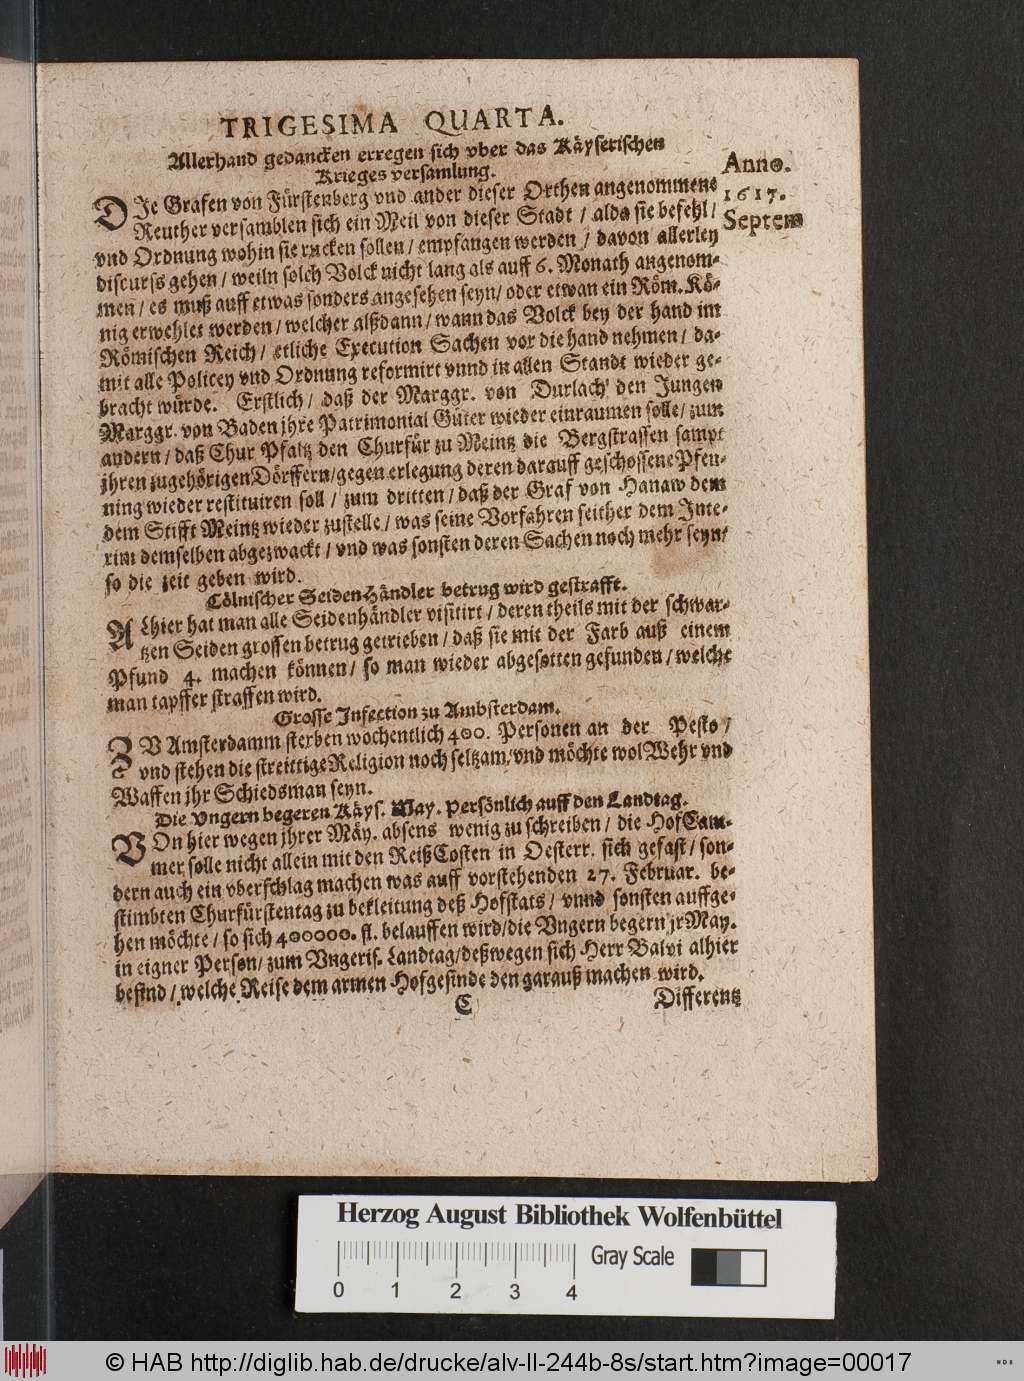 TRIGESIMA QUARTA.
Allerhand gedancken erregen sich vber das Käyserischen
Krieges versamlung.
Anno.
1617.
Septem
DIe Grafen von Fürstenberg vnd ander dieser Orthen angenommene
Reuther versamblen sich ein Meil von dieser Stadt / alda sie befehl /
vnd Ordnung wohin sie rucken sollen / empfangen werden / davon allerley
discurss gehen / weiln solch Volck nicht lang als auff 6. Monath angenom-
men / es muß auff etwas sonders angesehen seyn / oder etwan ein Röm. Kö-
nig erwehlet werden / welcher alßdann / wann das Volck bey der hand im
Römischen Reich / etliche Execution Sachen vor die hand nehmen / da-
mit alle Policey vnd Ordnung reformirt vnnd in allen Standt wieder ge-
bracht würde. Erstlich / daß der Marggr. von Durlach den Jungen
Marggr. von Baden jhre Patrimonial Güter wieder einraumen solle / zum
andern / daß Chur Pfaltz den Churfür zu Meintz die Bergstrassen sampt
jhren zugehörigen Dörffern / gegen erlegung deren darauff geschossene Pfen-
ning wieder restituiren soll / zum dritten / daß der Graf von Hanaw dem
dem Stifft Meintz wieder zustelle / was seine Vorfahren seither dem Inte-
rim demselben abgezwackt / vnd was sonsten deren Sachen noch mehr seyn /
so die zeit geben wird.
Cölnischer Seiden Händler betrug wird gestrafft.
Alhier hat man alle Seidenhändler visitirt / deren theils mit der schwar-
tzen Seiden grossen betrug getrieben / daß sie mit der Farb auß einem
Pfund 4. machen können / so man wieder abgesotten gefunden / welche
man tapffer straffen wird.
Grosse Infection zu Ambsterdam.
ZV Amsterdamm sterben wochentlich 400. Personen an der Peste /
vnd stehen die streittige Religion noch seltzam / vnd möchte wol Wehr vnd
Waffen jhr Schiedsman seyn.
Die Vngern begeren Käys. May. persönlich auff den Landtag.
VOn hier wegen jhrer Mäy. absens wenig zu schreiben / die HofCam-
mer solle nicht allein mit den ReißCosten in Oesterr. sich gefast / son-
dern auch ein vberschlag machen was auff vorstehenden 27. Februar. be-
stimbten Churfürstentag zu bekleitung deß Hofstats / vnnd sonsten auffge-
hen möchte / so sich 400000. fl. belauffen wird / die Vngern begern jr May.
in eigner Person / zum Vngeris. Landtag / deßwegen sich Herr Balvi alhier
befind / welche Reise dem armen Hofgesinde den garauß machen wird.
C
Differentz
Herzog August Bibliothek Wolfenbüttel
Gray Scale
0 1 2 3 4
© HAB http://diglib.hab.de/drucke/alv-ll-244b-8s/start.htm?image=00017